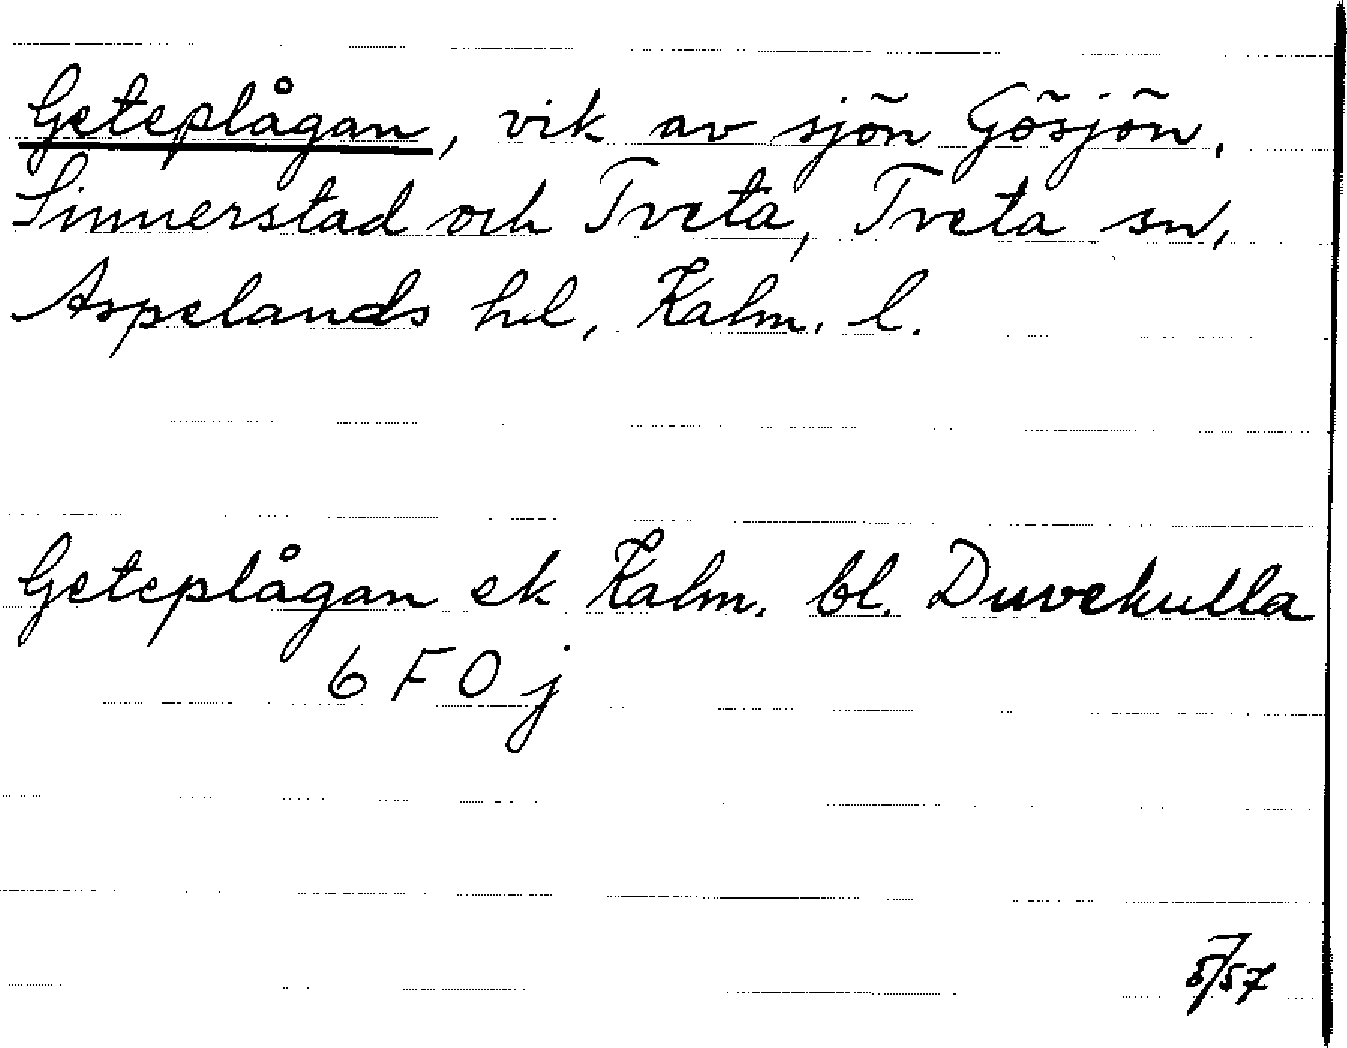 Geteplågan, vik av sjön Gösjön,
Sinnerstad och Tveta, Tveta sn,
Aspelands hd, Kalm. l.
Geteplågan ek Kalm. bl. Duvekulla
6 F 0 j
5/57